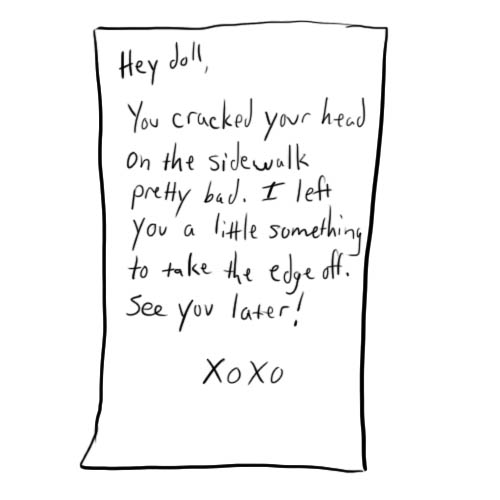 Hey doll,
You cracked your head
on the sidewalk
pretty bad. I left
you a little something
to take the edge off.
See you later!
XoXo